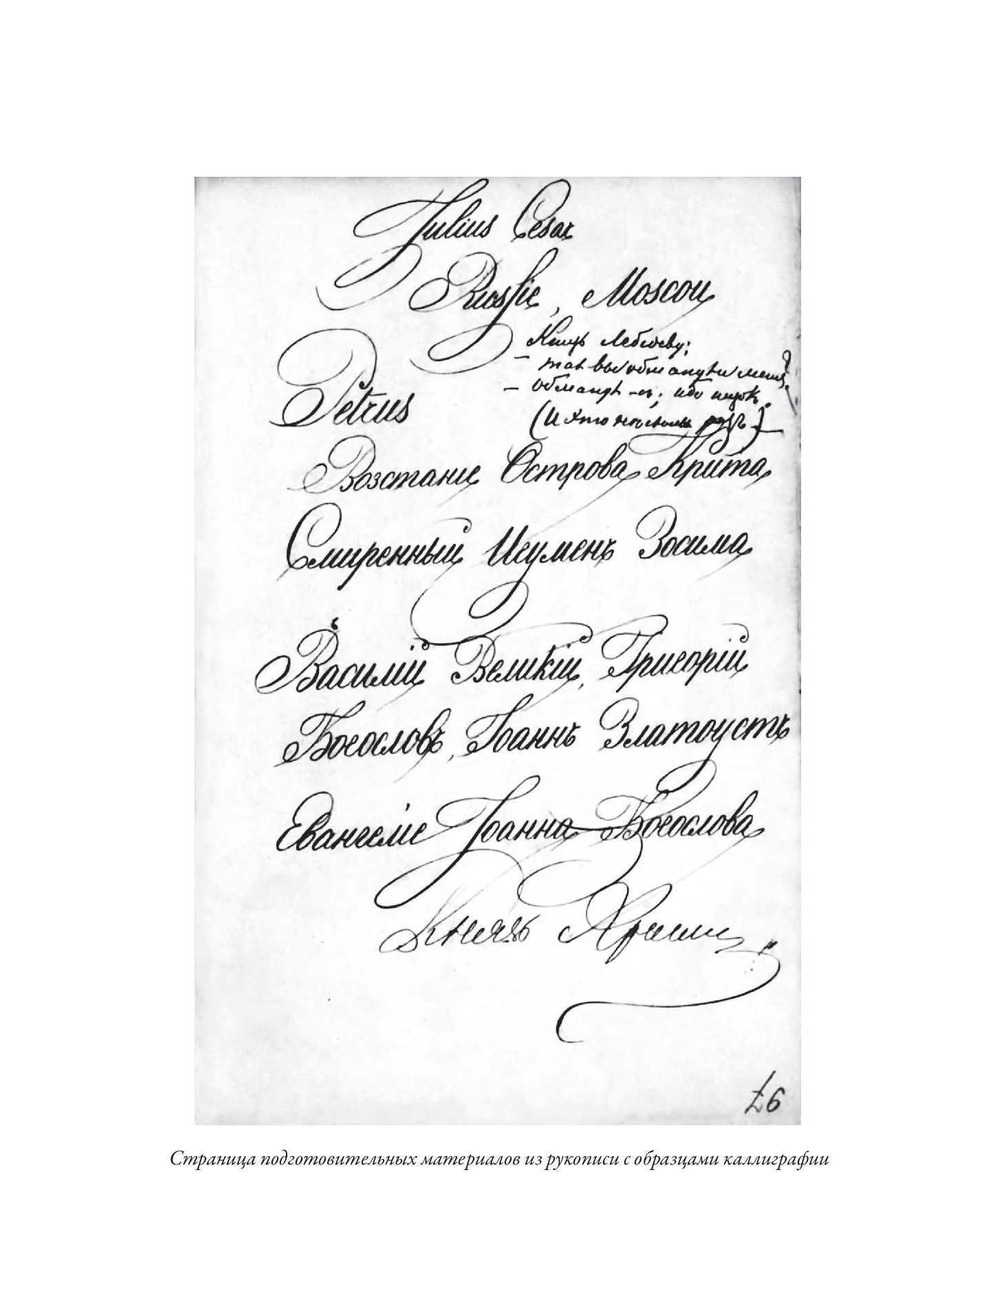 Julius Cesar
Russie, Moscou
Князь Лебедеву:
– так вы обманули меня?
– обманул-съ; ибо низокъ.
(И это
Petrus
Возстание Острова Крита
Смиренный Игуменъ Зосима
Василій Великій, Григорій
Богословъ, Іоаннъ Златоустъ
Евангеліе Іоанна Богослова
Князь
26
Страница подготовительных материалов из рукописи с образцами каллиграфии